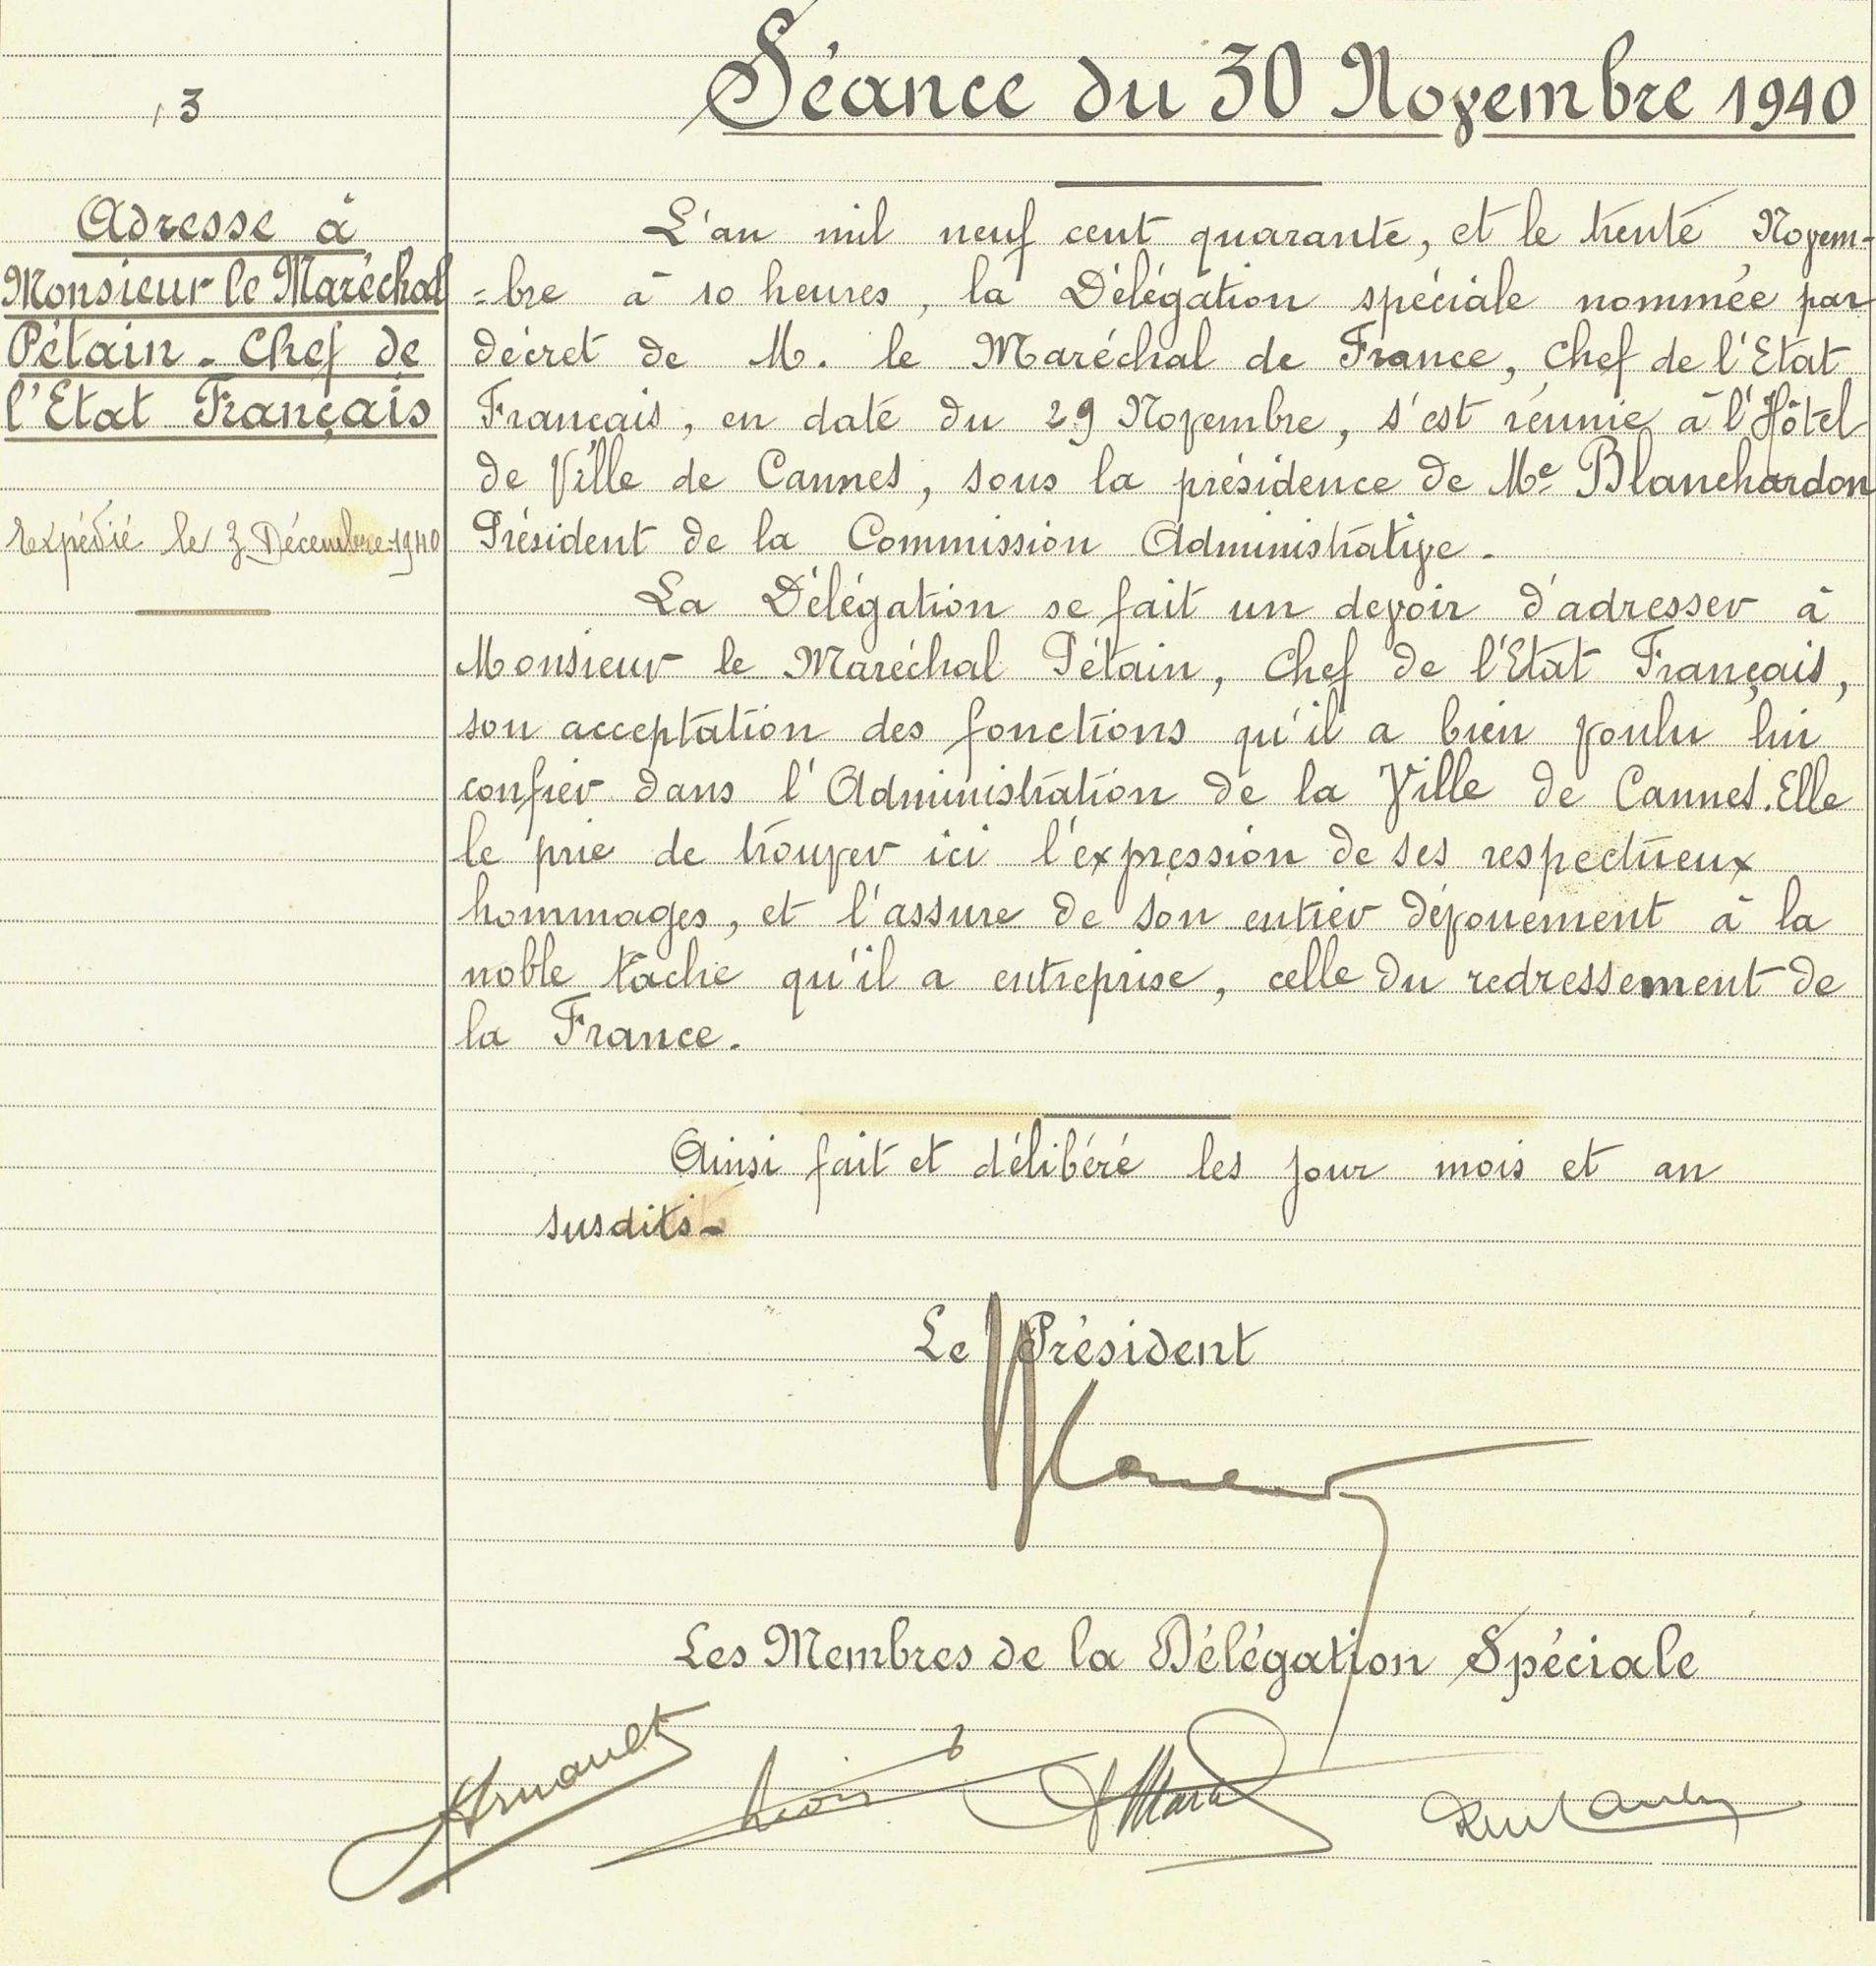 Séance du 30 Novembre 1940
3
Adresse à
Monsieur le Maréchal
Pétain - Chef de
l'Etat Français
Expédié le 3 Décembre 1940
L'an mil neuf cent quarante, et le trente Novem-
=bre à 10 heures, la Délégation spéciale nommée par
décret de M. le Maréchal de France, Chef de l'Etat
Français, en date du 29 Novembre, s'est réunie à l'Hôtel
de Ville de Cannes, sous la présidence de Me Blanchardon
Président de la Commission Administrative.
La Délégation se fait un devoir d'adresser à
Monsieur le Maréchal Pétain, Chef de l'Etat Français,
son acceptation des fonctions qu'il a bien voulu lui
confier dans l'Administration de la Ville de Cannes. Elle
le prie de trouver ici l'expression de ses respectueux
hommages, et l'assure de son entier dévouement à la
noble tâche qu'il a entreprise, celle du redressement de
la France.
Ainsi fait et délibéré les jour mois et an
susdits.
Le Président
Les Membres de la Délégation Spéciale